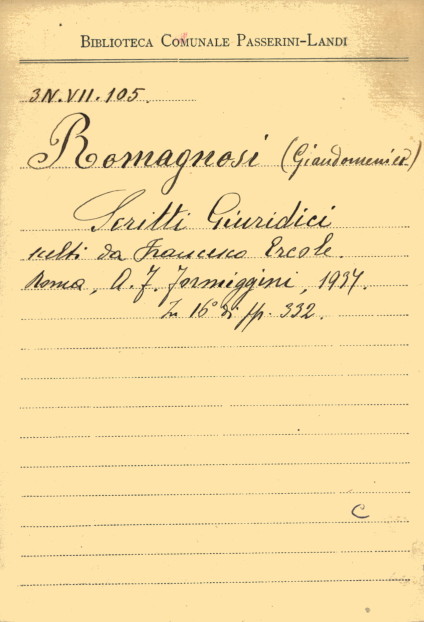 BIBLIOTECA COMUNALE PASSERINI-LANDI
3N.VII.105.
Romagnosi (Giandomenico)
Scritti Giuridici
scelti da Francesco Ercole.
Roma, A. F. Formiggini, 1937.
In 16° di pp. 332.
C